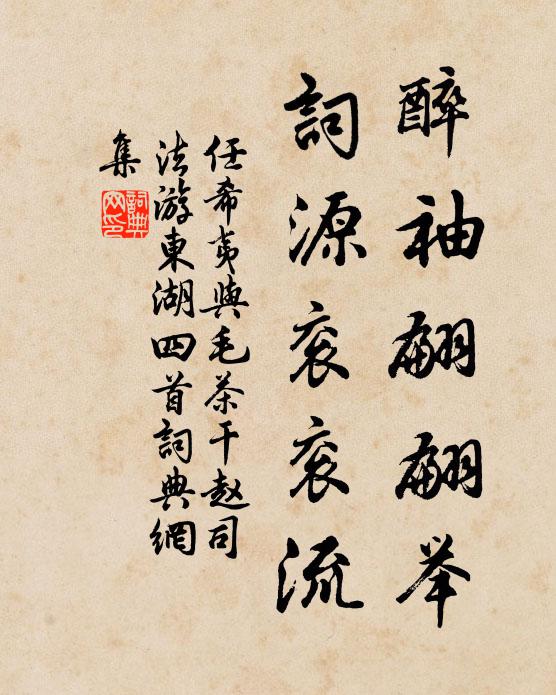 醉袖翩翩举
词源衮衮流
任希夷與毛茶干赵司
法游東湖四首詞典網
集
詞典
网印